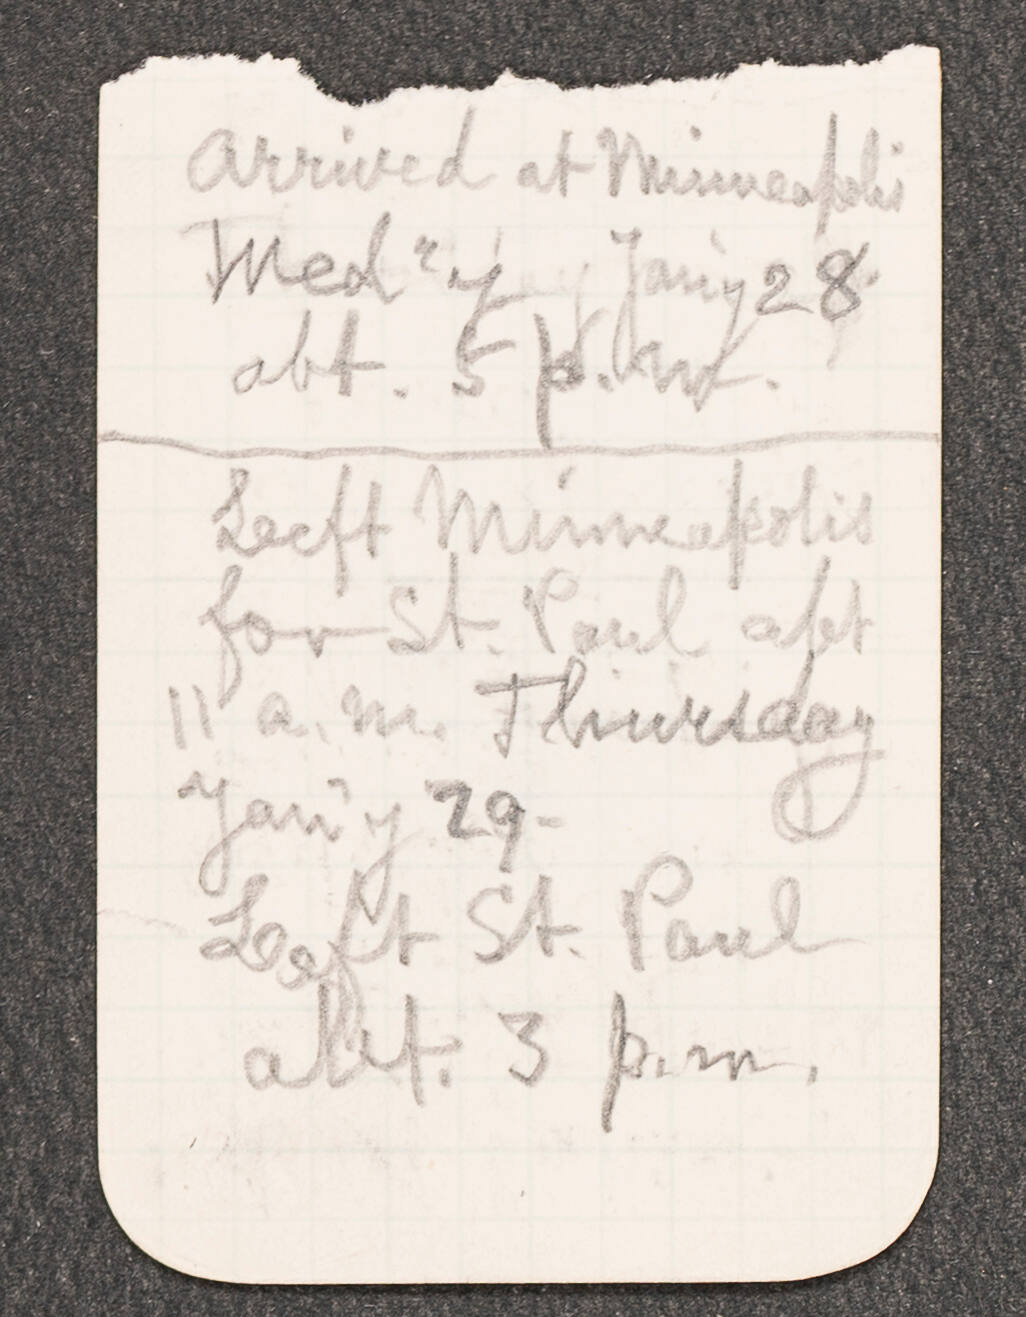 Arrived at Minneapolis
Wed'y Jan'y 28
abt. 5 p.m.
Left Minneapolis
for St. Paul abt
11 a.m. Thursday
Jan'y 29-
Left St. Paul
abt. 3 p.m.